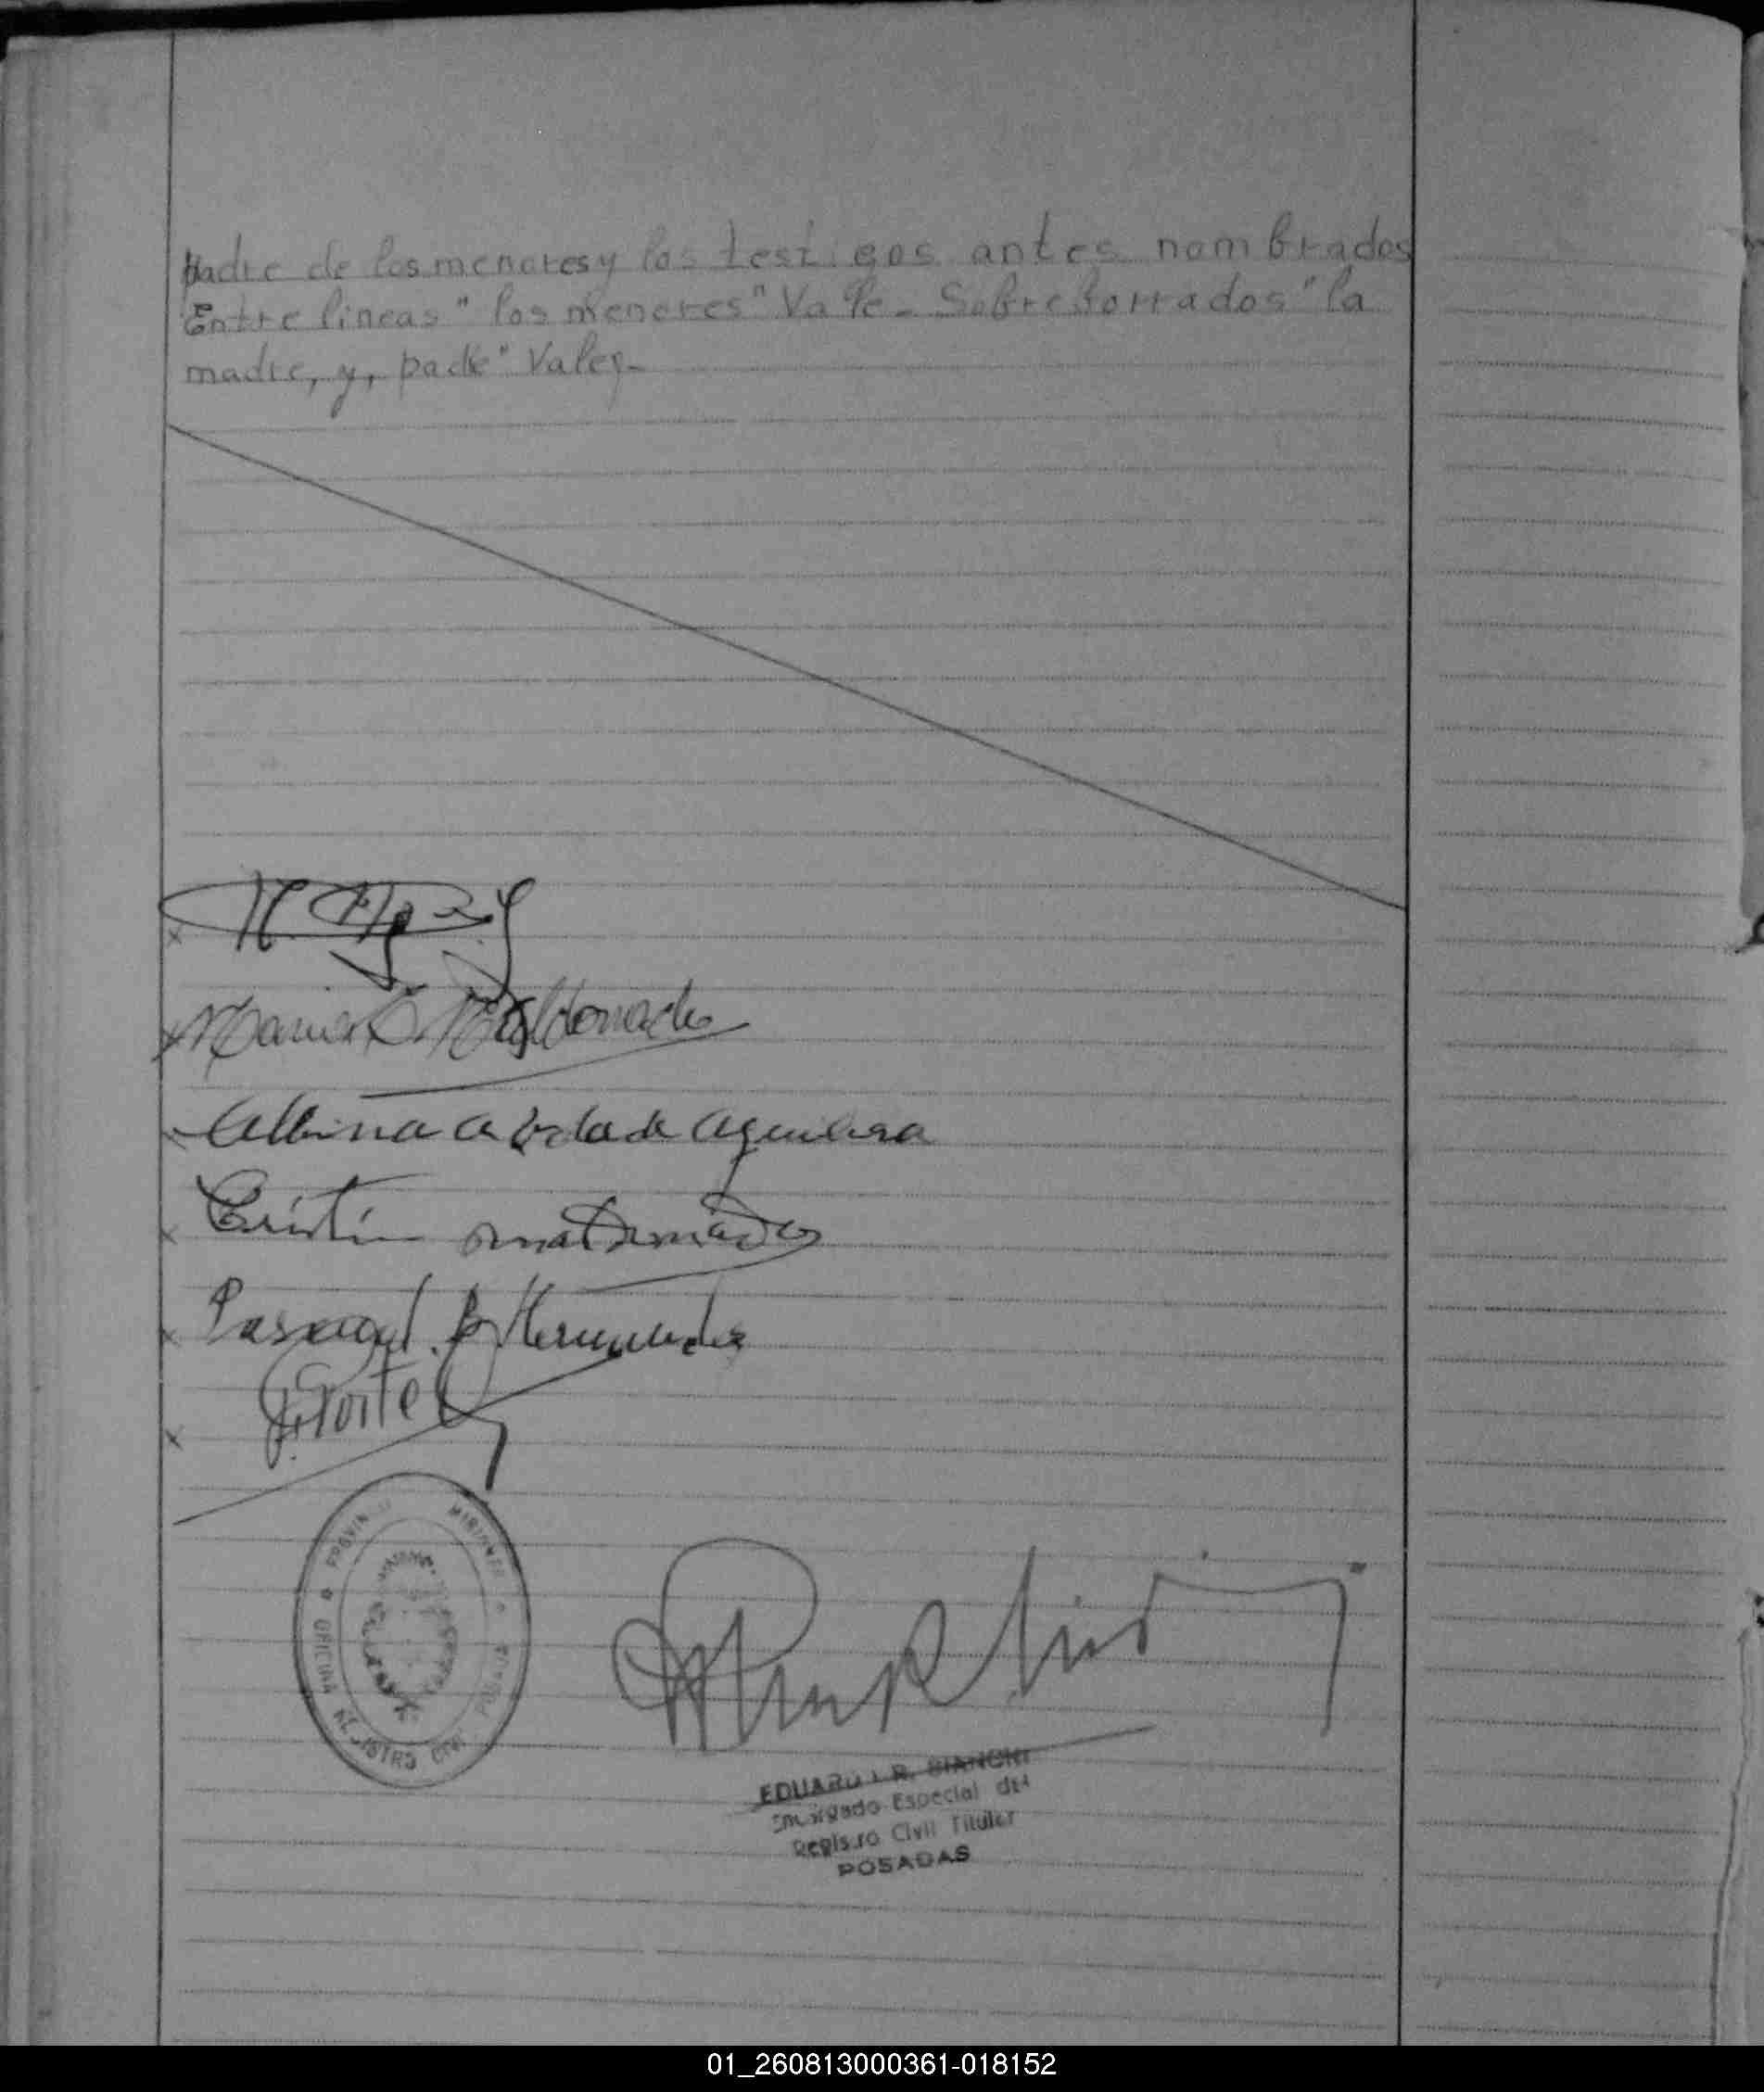 padre de los menores y los testigos antes nombrados
Entre lineas "los menores" Vale. Sobre borrados "la
madre, y, padre" Valen.-
Maldonado
Albina de Aguilera
Cristin Maldonado
Pascual B. Hernandez
J. Portel
PROVINCIA MISIONES
OFICINA REGISTRO CIVIL POSADAS
EDUARDO R. BIANCHI
Encargado Especial del
Registro Civil Titular
POSADAS
01_260813000361-018152